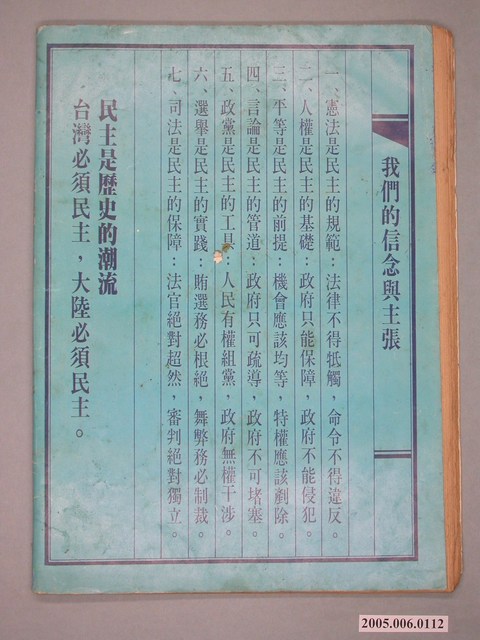 我們的信念與主張
一、憲法是民主的規範：法律不得牴觸，命令不得違反。
二、人權是民主的基礎：政府只能保障，政府不能侵犯。
三、平等是民主的前提：機會應該均等，特權應該剷除。
四、言論是民主的管道：政府只可疏導，政府不可堵塞。
五、政黨是民主的工具：人民有權組黨，政府無權干涉。
六、選舉是民主的實踐：賄選務必根絕，舞弊務必制裁。
七、司法是民主的保障：法官絕對超然，審判絕對獨立。
民主是歷史的潮流
台灣必須民主，大陸必須民主。
2005.006.0112